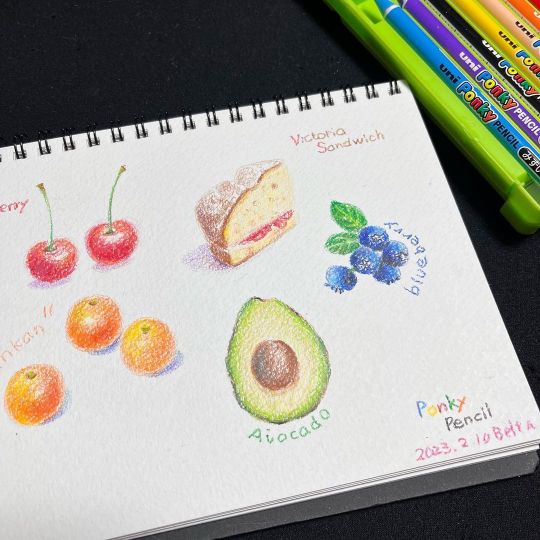 uni Ponky PENCIL
uni Ponky PENCIL
uni
Victoria
Sandwich
erry
blueberry
nkan"
Avocado
Ponky
Pencil
2023.2.10 Beth A